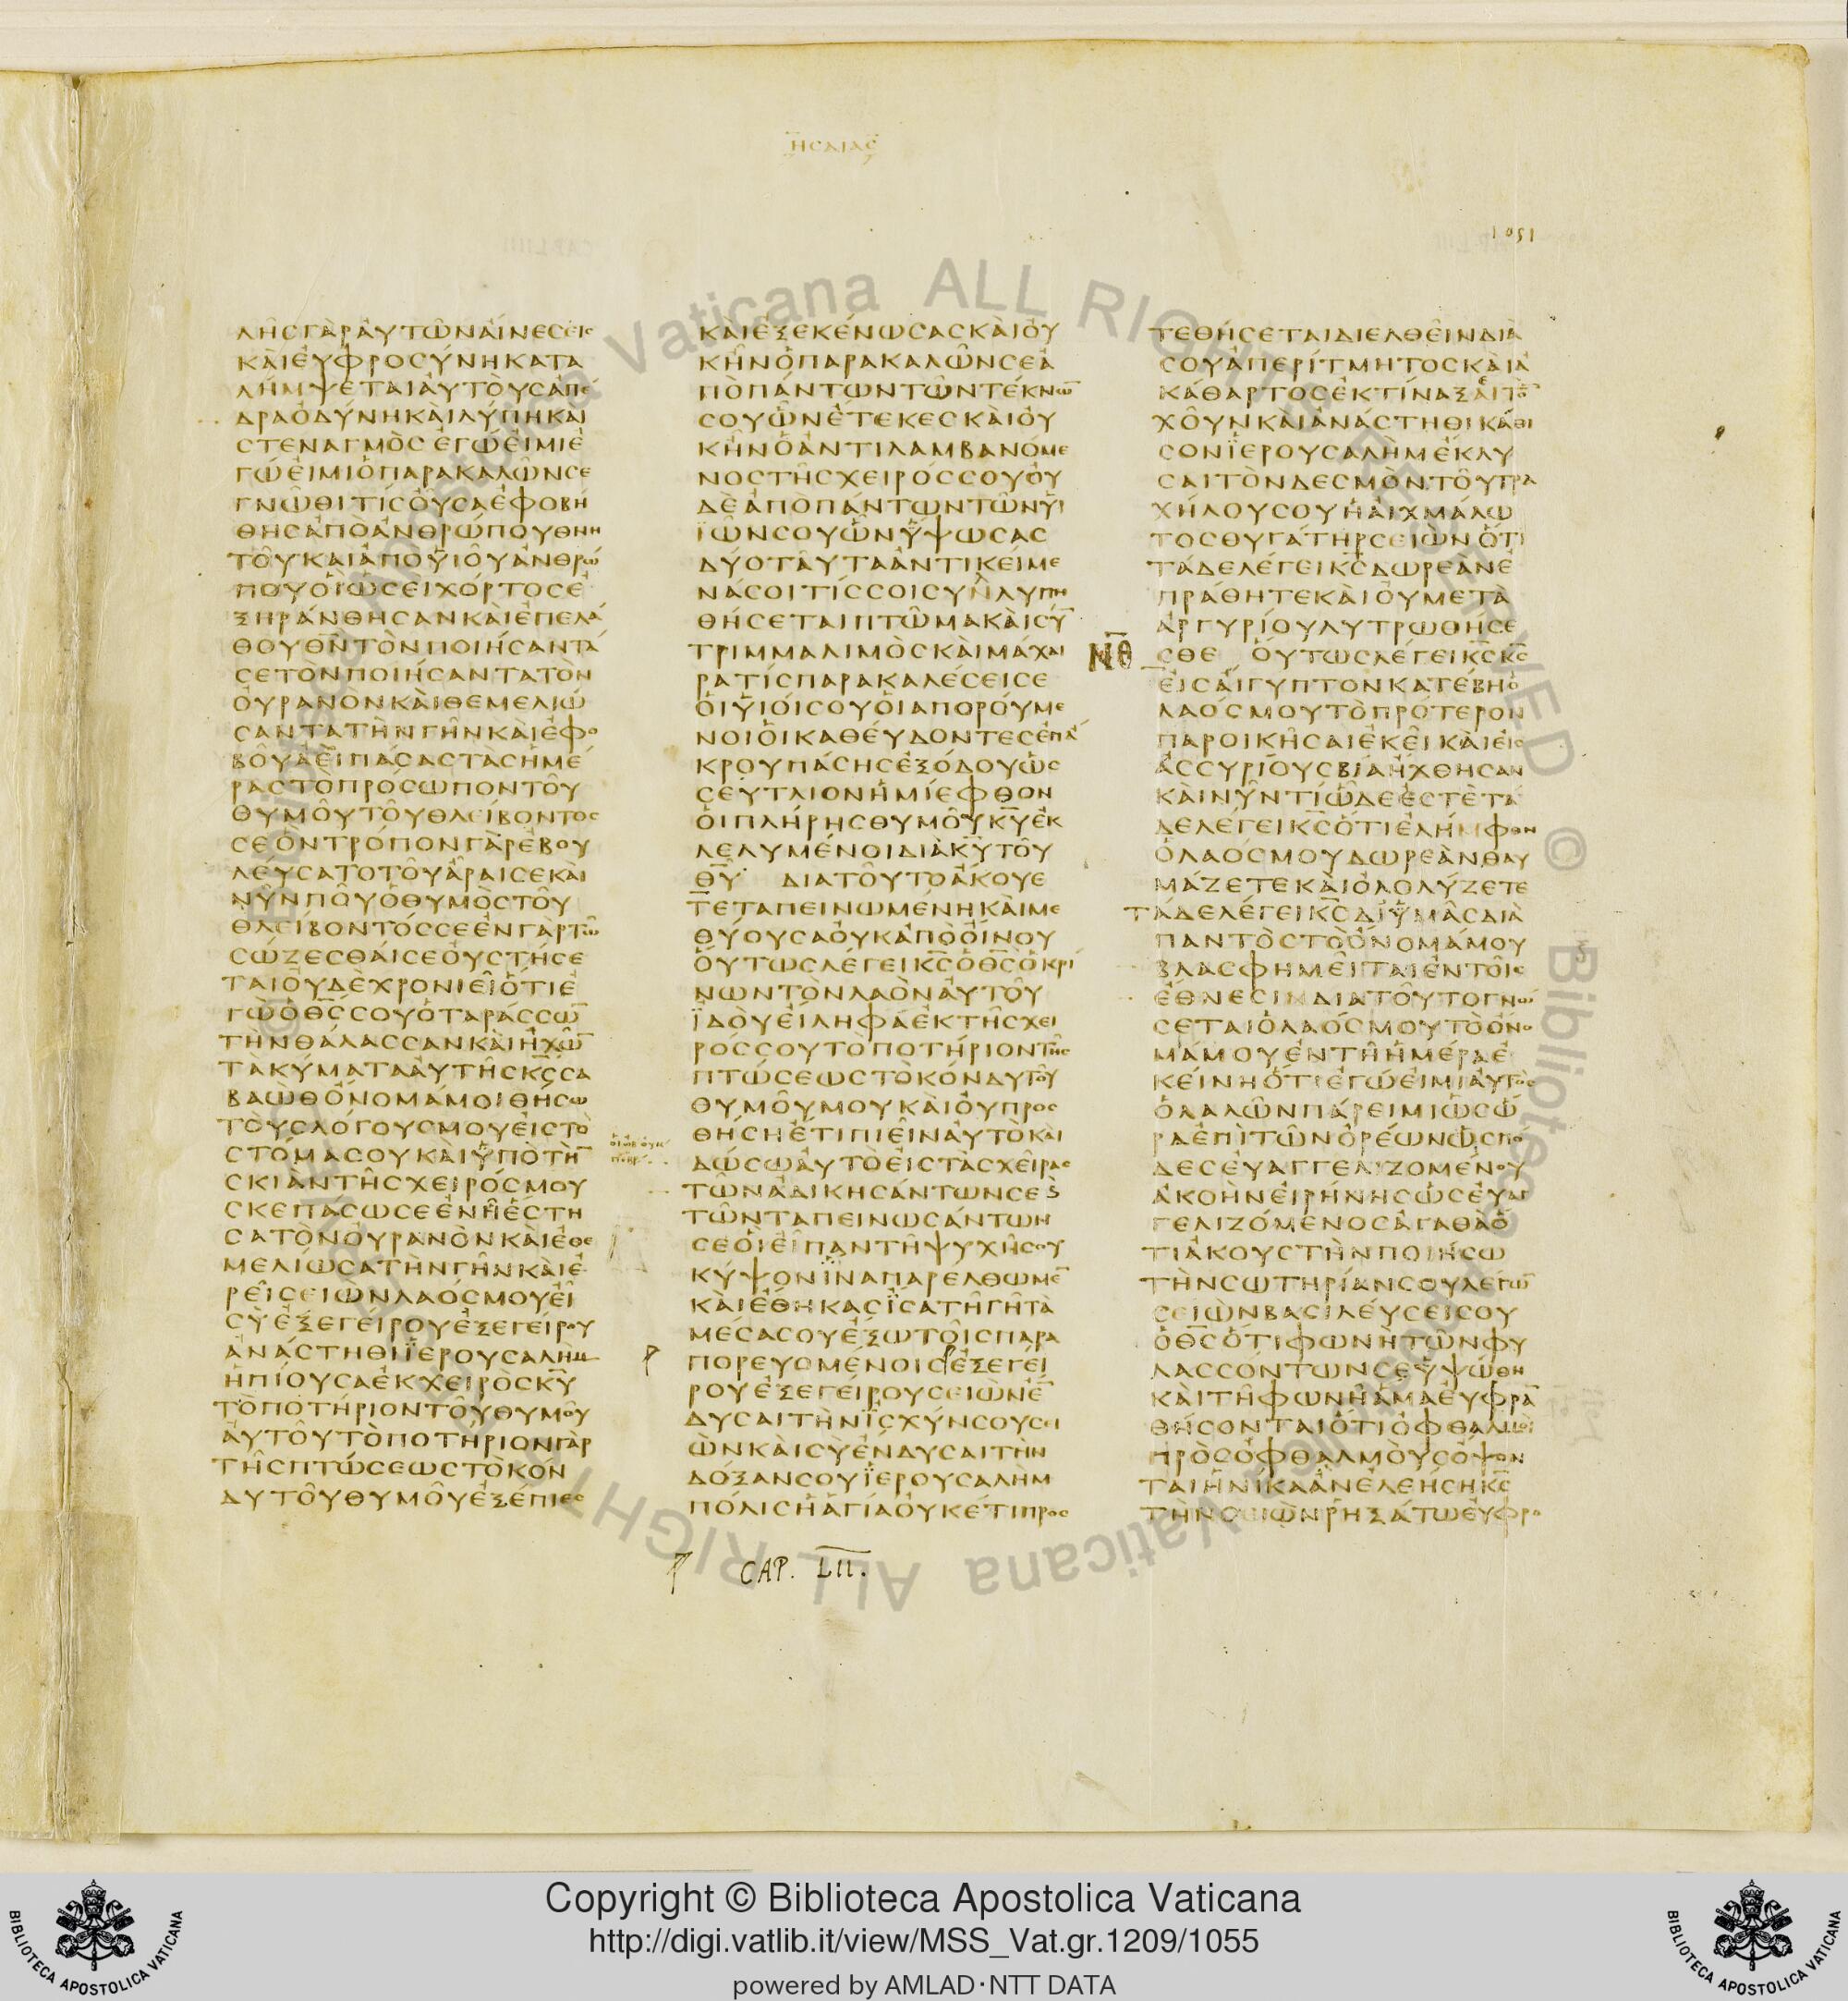 ΗΣΑΙΑΣ
1051
ΛΗΣΓΑΡΑΥΤΩΝΑΙΝΕΣΕΙΣ
ΚΑΙΕΥΦΡΟΣΥΝΗΚΑΤΑ
ΛΗΜΨΕΤΑΙΑΥΤΟΥΣΑΠΕ
ΔΡΑΟΔΥΝΗΚΑΙΛΥΠΗΚΑΙ
ΣΤΕΝΑΓΜΟΣΕΓΩΕΙΜΙΕ
ΓΩΕΙΜΙΟΠΑΡΑΚΑΛΩΝΣΕ
ΓΝΩΘΙΤΙΣΟΥΣΑΕΦΟΒΗ
ΘΗΣΑΠΟΑΝΘΡΩΠΟΥΘΝΗ
ΤΟΥΚΑΙΑΠΟΫΙΟΥΑΝΘΡΩ
ΠΟΥΟΙΩΣΕΙΧΟΡΤΟΣΕ
ΞΗΡΑΝΘΗΣΑΝΚΑΙΕΠΕΛΑ
ΘΟΥΘΝΤΟΝΠΟΙΗΣΑΝΤΑ
ΣΕΤΟΝΠΟΙΗΣΑΝΤΑΤΟΝ
ΟΥΡΑΝΟΝΚΑΙΘΕΜΕΛΙΩ
ΣΑΝΤΑΤΗΝΓΗΝΚΑΙΕΦΟ
ΒΟΥΑΕΙΠΑΣΑΣΤΑΣΗΜΕ
ΡΑΣΤΟΠΡΟΣΩΠΟΝΤΟΥ
ΘΥΜΟΥΤΟΥΘΛΕΙΒΟΝΤΟΣ
ΣΕΟΝΤΡΟΠΟΝΓΑΡΕΒΟΥ
ΛΕΥΣΑΤΟΤΟΥΑΡΑΙΣΕΚΑΙ
ΝΥΝΠΟΥΟΘΥΜΟΣΤΟΥ
ΘΛΕΙΒΟΝΤΟΣΣΕΕΝΓΑΡΤΩ
ΣΩΖΕΣΘΑΙΣΕΟΥΣΤΗΣΕ
ΤΑΙΟΥΔΕΧΡΟΝΙΕΙΟΤΙΕ
ΓΩΟΘΣΣΟΥΟΤΑΡΑΣΣΩ̅
ΤΗΝΘΑΛΑΣΣΑΝΚΑΙΗΧΩ̅
ΤΑΚΥΜΑΤΑΑΥΤΗΣΚΣΣΑ
ΒΑΩΘΟΝΟΜΑΜΟΙΘΗΣΩ
ΤΟΥΣΛΟΓΟΥΣΜΟΥΕΙΣΤΟ
ΣΤΟΜΑΣΟΥΚΑΙΫΠΟΤΗ̅
ΣΚΙΑΝΤΗΣΧΕΙΡΟΣΜΟΥ
ΣΚΕΠΑΣΩΣΕΕΝΗΕΣΤΗ
ΣΑΤΟΝΟΥΡΑΝΟΝΚΑΙΕΘΕ
ΜΕΛΙΩΣΑΤΗΝΓΗΝΚΑΙΕ
ΡΕΙΣΕΙΩΝΛΑΟΣΜΟΥΕΙ
ΣΥΕΞΕΓΕΙΡΟΥΕΞΕΓΕΙΡΟΥ
ΑΝΑΣΤΗΘΙΪΕΡΟΥΣΑΛΗΜ
ΗΠΙΟΥΣΑΕΚΧΕΙΡΟΣΚΥ
ΤΟΠΟΤΗΡΙΟΝΤΟΥΘΥΜΟΥ
ΑΥΤΟΥΤΟΠΟΤΗΡΙΟΝΓΑΡ
ΤΗΣΠΤΩΣΕΩΣΤΟΚΟΝ
ΔΥΤΟΥΘΥΜΟΥΕΞΕΠΙΕΣ
ΚΑΙΕΞΕΚΕΝΩΣΑΣΚΑΙΟΥ
ΚΗΝΟΠΑΡΑΚΑΛΩΝΣΕΑ
ΠΟΠΑΝΤΩΝΤΩΝΤΕΚΝΩ̅
ΣΟΥΩΝΕΤΕΚΕΣΚΑΙΟΥ
ΚΗΝΟΑΝΤΙΛΑΜΒΑΝΟΜΕ
ΝΟΣΤΗΣΧΕΙΡΟΣΣΟΥΟΥ
ΔΕΑΠΟΠΑΝΤΩΝΤΩΝΥΙ
ΪΩΝΣΟΥΩΝΫΨΩΣΑΣ
ΔΥΟΤΑΥΤΑΑΝΤΙΚΕΙΜΕ
ΝΑΣΟΙΤΙΣΣΟΙΣΥΝΛΥΠΗ
ΘΗΣΕΤΑΙΠΤΩΜΑΚΑΙΣΥ̅
ΤΡΙΜΜΑΛΙΜΟΣΚΑΙΜΑΧΑΙ
ΡΑΤΙΣΠΑΡΑΚΑΛΕΣΕΙΣΕ
ΟΙΫΙΟΙΣΟΥΟΙΑΠΟΡΟΥΜΕ
ΝΟΙΟΙΚΑΘΕΥΔΟΝΤΕΣΕΠΑ
ΚΡΟΥΠΑΣΗΣΕΞΟΔΟΥΩΣ
ΣΕΥΤΛΙΟΝΗΜΙΕΦΘΟΝ
ΟΙΠΛΗΡΗΣΘΥΜΟΥΚΥΕΚ
ΛΕΛΥΜΕΝΟΙΔΙΑΚΥΤΟΥ
ΘΥ ΔΙΑΤΟΥΤΟΑΚΟΥΕ
ΤΕΤΑΠΕΙΝΩΜΕΝΗΚΑΙΜΕ
ΘΥΟΥΣΑΟΥΚΑΠΟΟΙΝΟΥ
ΟΥΤΩΣΛΕΓΕΙΚΣΟΘΣΟΚΡΙ
ΝΩΝΤΟΝΛΑΟΝΑΥΤΟΥ
ΪΔΟΥΕΙΛΗΦΑΕΚΤΗΣΧΕΙ
ΡΟΣΣΟΥΤΟΠΟΤΗΡΙΟΝΤΗΣ
ΠΤΩΣΕΩΣΤΟΚΟΝΔΥΤΟΥ
ΘΥΜΟΥΜΟΥΚΑΙΟΥΠΡΟΣ
ΘΗΣΗΕΤΙΠΙΕΙΝΑΥΤΟΚΑΙ
ΔΩΣΩΑΥΤΟΕΙΣΤΑΣΧΕΙΡΑΣ
ΤΩΝΑΔΙΚΗΣΑΝΤΩΝΣΕ
ΤΩΝΤΑΠΕΙΝΩΣΑΝΤΩΝ
ΣΕΟΙΕΙΠΑΝΤΗΨΥΧΗΣΟΥ
ΚΥΨΟΝΪΝΑΠΑΡΕΛΘΩΜΕ̅
ΚΑΙΕΘΗΚΑΣΪΣΑΤΗΓΗΤΑ
ΜΕΣΑΣΟΥΕΞΩΤΟΙΣΠΑΡΑ
ΠΟΡΕΥΟΜΕΝΟΙΣΕΞΕΓΕΙ
ΡΟΥΕΞΕΓΕΙΡΟΥΣΕΙΩΝΕ̅
ΔΥΣΑΙΤΗΝΪΣΧΥΝΣΟΥΣΙ
ΩΝΚΑΙΣΥΕΝΔΥΣΑΙΤΗΝ
ΔΟΞΑΝΣΟΥΪΕΡΟΥΣΑΛΗΜ
ΠΟΛΙΣΗΑΓΙΑΟΥΚΕΤΙΠΡΟΣ
CAP. LII.
ΤΕΘΗΣΕΤΑΙΔΙΕΛΘΕΙΝΔΙΑ
ΣΟΥΑΠΕΡΙΤΜΗΤΟΣΚΑΙΑ
ΚΑΘΑΡΤΟΣΕΚΤΙΝΑΞΑΙΤΟ̅
ΧΟΥΝΚΑΙΑΝΑΣΤΗΘΙΚΑΘΙ
ΣΟΝΪΕΡΟΥΣΑΛΗΜΕΚΛΥ
ΣΑΙΤΟΝΔΕΣΜΟΝΤΟΥΤΡΑ
ΧΗΛΟΥΣΟΥΗΑΙΧΜΑΛΩ
ΤΟΣΘΥΓΑΤΗΡΣΕΙΩΝΟΤΙ
ΤΑΔΕΛΕΓΕΙΚΣΔΩΡΕΑΝΕ
ΠΡΑΘΗΤΕΚΑΙΟΥΜΕΤΑ
ΑΡΓΥΡΙΟΥΛΥΤΡΩΘΗΣΕ
ΝΘ ΣΘΕ ΟΥΤΩΣΛΕΓΕΙΚΣΚΣ
ΕΙΣΑΙΓΥΠΤΟΝΚΑΤΕΒΗΟ
ΛΑΟΣΜΟΥΤΟΠΡΟΤΕΡΟΝ
ΠΑΡΟΙΚΗΣΑΙΕΚΕΙΚΑΙΕΙΣ
ΑΣΣΥΡΙΟΥΣΒΙΑΗΧΘΗΣΑΝ
ΚΑΙΝΥΝΤΙΩΔΕΕΣΤΕΤΑ
ΔΕΛΕΓΕΙΚΣΟΤΙΕΛΗΜΦΘΗ
ΟΛΑΟΣΜΟΥΔΩΡΕΑΝΘΑΥ
ΜΑΖΕΤΕΚΑΙΟΛΟΛΥΖΕΤΕ
ΤΑΔΕΛΕΓΕΙΚΣΔΙΫΜΑΣΔΙΑ
ΠΑΝΤΟΣΤΟΟΝΟΜΑΜΟΥ
ΒΛΑΣΦΗΜΕΙΤΑΙΕΝΤΟΙΣ
ΕΘΝΕΣΙΝΔΙΑΤΟΥΤΟΓΝΩ
ΣΕΤΑΙΟΛΑΟΣΜΟΥΤΟΟΝΟ
ΜΑΜΟΥΕΝΤΗΗΜΕΡΑΕ
ΚΕΙΝΗΟΤΙΕΓΩΕΙΜΙΑΥΤΟΣ
ΟΛΑΛΩΝΠΑΡΕΙΜΙΩΣΩ
ΡΑΕΠΙΤΩΝΟΡΕΩΝΩΣΠΟ
ΔΕΣΕΥΑΓΓΕΛΙΖΟΜΕΝΟΥ
ΑΚΟΗΝΕΙΡΗΝΗΣΩΣΕΥΑΓ
ΓΕΛΙΖΟΜΕΝΟΣΑΓΑΘΑΟ
ΤΙΑΚΟΥΣΤΗΝΠΟΙΗΣΩ
ΤΗΝΣΩΤΗΡΙΑΝΣΟΥΛΕΓΩ̅
ΣΕΙΩΝΒΑΣΙΛΕΥΣΕΙΣΟΥ
ΟΘΣΟΤΙΦΩΝΗΤΩΝΦΥ
ΛΑΣΣΟΝΤΩΝΣΕΫΨΩΘΗ
ΚΑΙΤΗΦΩΝΗΑΜΑΕΥΦΡΑ̅
ΘΗΣΟΝΤΑΙΟΤΙΟΦΘΑΛΜΟΙ
ΠΡΟΣΟΦΘΑΛΜΟΥΣΟΨΟΝ
ΤΑΙΗΝΙΚΑΑΝΕΛΕΗΣΗΚΣ
ΤΗΝΣΕΙΩΝΡΗΞΑΤΩΕΥΦΡΟ
Vaticana ALL RIGHTS RESERVED © Biblioteca Apostolica Vaticana ALL RIGHTS
Copyright © Biblioteca Apostolica Vaticana
http://digi.vatlib.it/view/MSS_Vat.gr.1209/1055
powered by AMLAD·NTT DATA
BIBLIOTECA APOSTOLICA VATICANA
BIBLIOTECA APOSTOLICA VATICANA